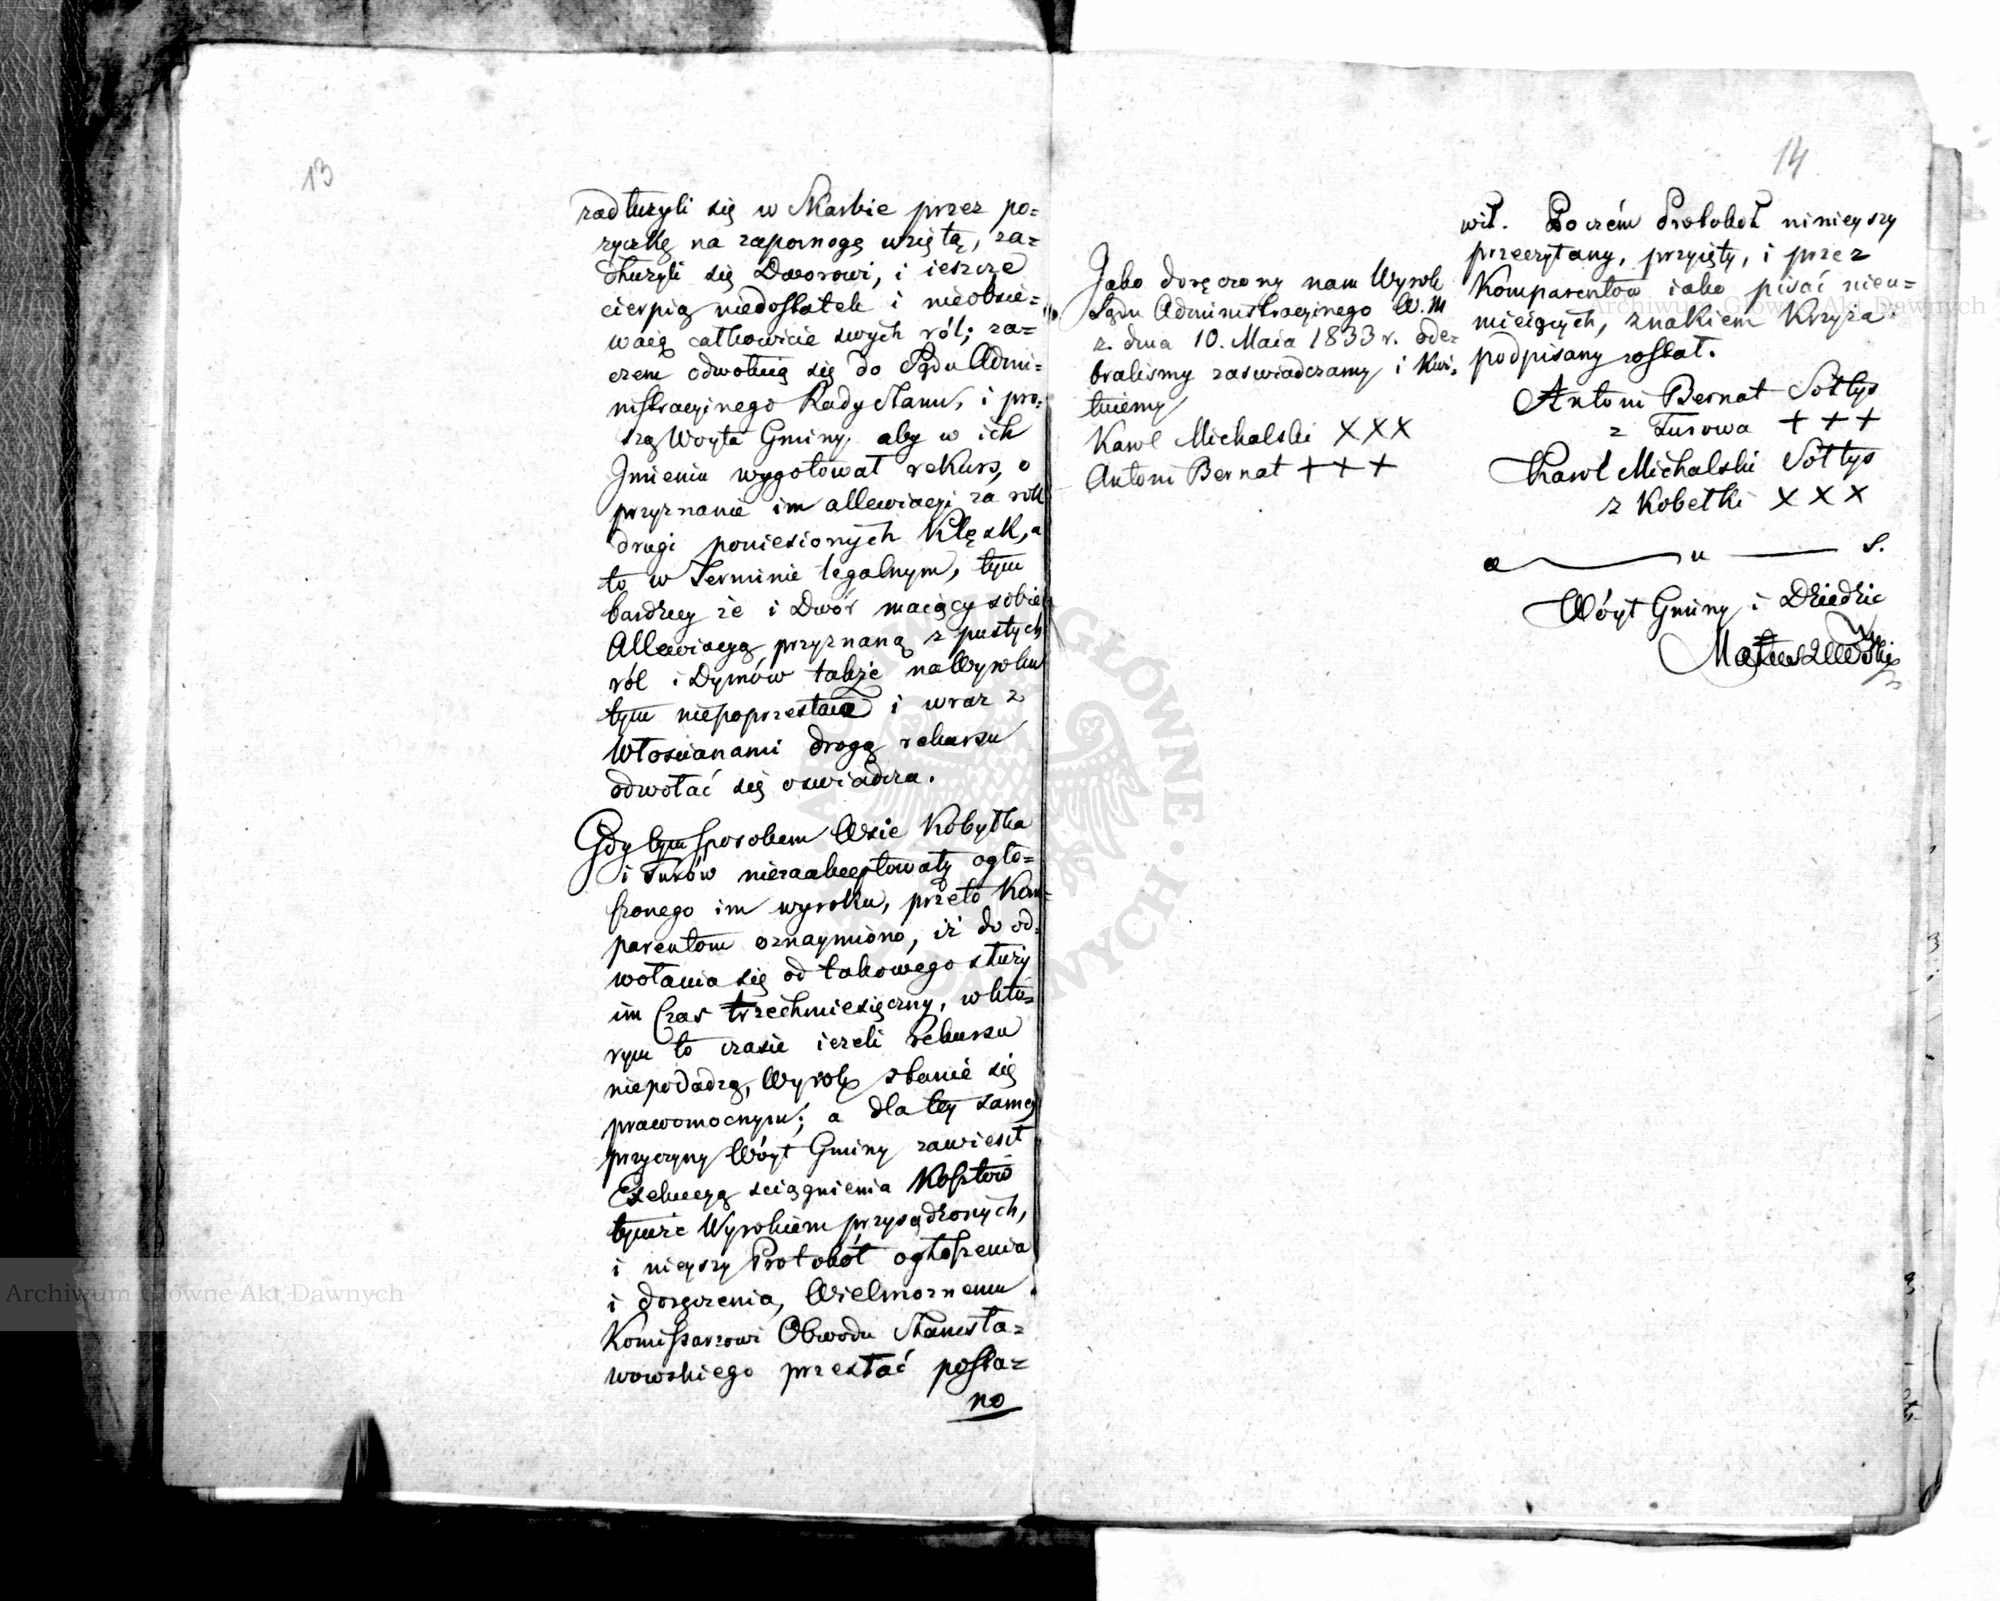 13
zadłużyli się w Skarbie przez po=
życzkę na zapomogę wziętą, za=
dłużyli się Dworowi, i ieszcze
cierpią niedostatek i nieobsie=
waią całkowicie swych ról; za=
czem odwołuią się do Sądu Admi=
nistracyinego Rady Stanu, i pro=
szą Woyta Gminy, aby w ich
Jmieniu wygotował rekurs, o
przyznanie im allewiacyi za rok
drugi poniesionych Klęsk, a
to w Terminie legalnym, tym
bardziey że i Dwór maiący sobie
Allewiacyą przyznaną z pustych
ról i Dymów także na Wyroku
tym niepoprzestaie i wraz z
Włoscianami drogą rekursu
odwołać się oswiadcza.
Gdy tym sposobem Wsie Kobyłka
i Turów niezaakceptowały ogło=
szonego im wyroku, przeto Kom=
parentom oznaymiono, iż do od=
wołania się od takowego służy
im Czas trzechmiesięczny, w któ=
rym to czasie ieżeli Rekursu
niepodadzą, Wyrok stanie się
prawomocnym; a dla tey samey
przyczyny Wóyt Gminy zawiesił
Exekucyą sciągnienia Kosztów
tymże Wyrokiem przysądzonych,
i nieyszy Protokół ogłoszenia
i doręczenia, Wielmożnemu
Komissarzowi Obwodu Stanisła=
wowskiego przesłać posta=
no
14
Jako doręczony nam Wyrok
Sądu Administracyinego W. M
z dnia 10. Maia 1833 r. ode=
bralismy zaswiadczamy i Kwi=
tuiemy
Karol Michalski XXX
Antoni Bernat +++
wił. Poczém Protokół ninieyszy
przeczytany, przyięty, i przez
Komparentów iako pisać nieu=
mieiących, znakiem Krzyża
podpisany został.
Antoni Bernat Sołtys
z Turowa +++
Karol Michalski Sołtys
z Kobełki XXX
a u s.
Wóyt Gminy i Dziedzic
Matuszewski
Archiwum Główne Akt Dawnych
Archiwum Główne Akt Dawnych